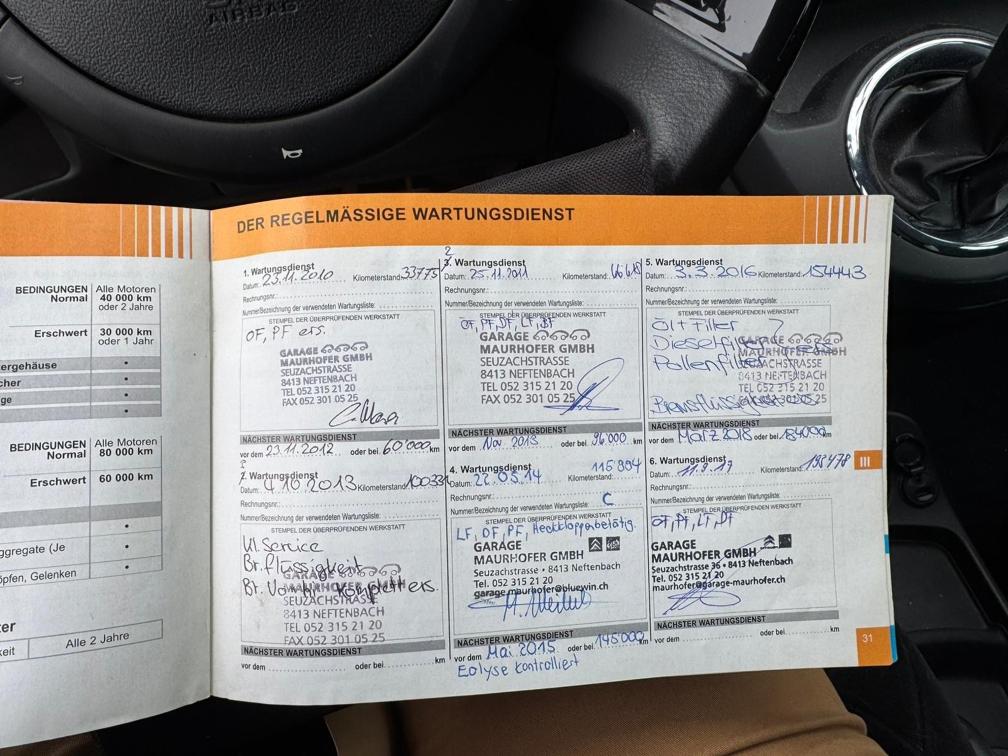 AIRBAG
BEDINGUNGEN
Normal
Alle Motoren
40 000 km
oder 2 Jahre
Erschwert
30 000 km
oder 1 Jahr
tergehäuse
cher
ge
BEDINGUNGEN
Normal
Alle Motoren
80 000 km
Erschwert
60 000 km
ggregate (Je
öpfen, Gelenken
ter
keit
Alle 2 Jahre
DER REGELMÄSSIGE WARTUNGSDIENST
1. Wartungsdienst
Datum: 23.11.2010 Kilometerstand: 33775
Rechnungsnr.:
Nummer/Bezeichnung der verwendeten Wartungsliste:
STEMPEL DER ÜBERPRÜFENDEN WERKSTATT
OF, PF ers.
GARAGE
MAURHOFER GMBH
SEUZACHSTRASSE
8413 NEFTENBACH
TEL 052 315 21 20
FAX 052 301 05 25
NÄCHSTER WARTUNGSDIENST
vor dem 23.11.2012 oder bei 60'000 km
2. Wartungsdienst
Datum: 4.10.2013 Kilometerstand: 100331
Rechnungsnr.:
Nummer/Bezeichnung der verwendeten Wartungsliste:
STEMPEL DER ÜBERPRÜFENDEN WERKSTATT
Kl. Service
Br. flüssigkeit
Br. komplett ers.
GARAGE
MAURHOFER GMBH
SEUZACHSTRASSE
8413 NEFTENBACH
TEL 052 315 21 20
FAX 052 301 05 25
NÄCHSTER WARTUNGSDIENST
vor dem oder bei km
2
3. Wartungsdienst
Datum: 25.11.2011 Kilometerstand:
Rechnungsnr.:
Nummer/Bezeichnung der verwendeten Wartungsliste:
STEMPEL DER ÜBERPRÜFENDEN WERKSTATT
OF, PF, DF, LF, BF
GARAGE
MAURHOFER GMBH
SEUZACHSTRASSE
8413 NEFTENBACH
TEL 052 315 21 20
FAX 052 301 05 25
NÄCHSTER WARTUNGSDIENST
vor dem Nov. 2013 oder bei 96'000 km
4. Wartungsdienst 115 804
Datum: 22.05.14 Kilometerstand:
Rechnungsnr.:
Nummer/Bezeichnung der verwendeten Wartungsliste:
STEMPEL DER ÜBERPRÜFENDEN WERKSTATT
LF, DF, PF, Heckklappenbetätig.
GARAGE
MAURHOFER GMBH
Seuzachstrasse • 8413 Neftenbach
Tel. 052 315 21 20
garage.maurhofer@bluewin.ch
NÄCHSTER WARTUNGSDIENST
vor dem Mai 2015 oder bei 145000 km
Eolyse kontrolliert
5. Wartungsdienst
Datum: 3.3.2016 Kilometerstand: 154443
Rechnungsnr.:
Nummer/Bezeichnung der verwendeten Wartungsliste:
STEMPEL DER ÜBERPRÜFENDEN WERKSTATT
Öl + Filter
Dieselfilter
Pollenfilter
Bremsflüssigkeit
GARAGE
MAURHOFER GMBH
SEUZACHSTRASSE
8413 NEFTENBACH
TEL 052 315 21 20
FAX 052 301 05 25
NÄCHSTER WARTUNGSDIENST
vor dem März 2018 oder bei 184000 km
6. Wartungsdienst
Datum: 11.9.17 Kilometerstand: 193478
Rechnungsnr.:
Nummer/Bezeichnung der verwendeten Wartungsliste:
STEMPEL DER ÜBERPRÜFENDEN WERKSTATT
OF, PF, LF, DF
GARAGE
MAURHOFER GMBH
Seuzachstrasse 36 • 8413 Neftenbach
Tel. 052 315 21 20
maurhofer@garage-maurhofer.ch
NÄCHSTER WARTUNGSDIENST
vor dem oder bei km
III
31